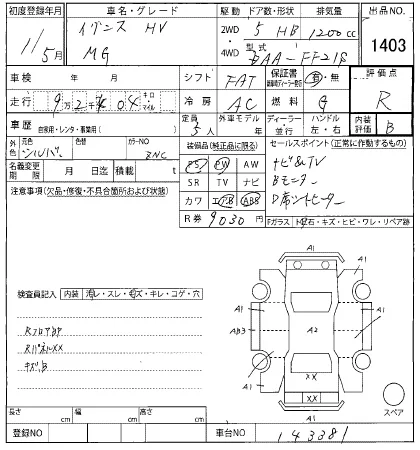 初度登録年月
11/5月
車名・グレード
イグニス HV
MG
駆動 ドア数・形状 排気量
2WD 5 HB 1200cc
4WD 型式
DAA-FF21S
出品NO.
1403
車検 年 月
シフト FAT
保証書 有・無
評価点
R
走行 9万2千404 キロ マイル
冷房 AC
燃料 G
車歴 自家用・レンタ・事業用( )
定員 5人
外車モデル 年
ディーラー 並行
ハンドル 左・右
内装評価 B
外色 元色 シルバー
カラーNO ZNC
装備品(純正品に限る)
セールスポイント(正常に作動するもの)
名義変更期限 月 日迄
積載 t
PS PW AW
SR TV ナビ
カワ エアB ABS
R券 9030円
ナビ&TV
Bモニター
D席シートヒーター
注意事項(欠品・修復・不具合箇所および状態)
Fガラス トビ石・キズ・ヒビ・ワレ・リペア跡
検査員記入 内装 汚レ・スレ・キズ・キレ・コゲ・穴
RフロアBP
RパネルXX
キズ小B
A1
A1 A1
A1 AB3 A2 A1
A1 A1
XX
XX
A1
スペア
長さ cm 幅 cm 高さ cm
登録NO
車台NO 143381